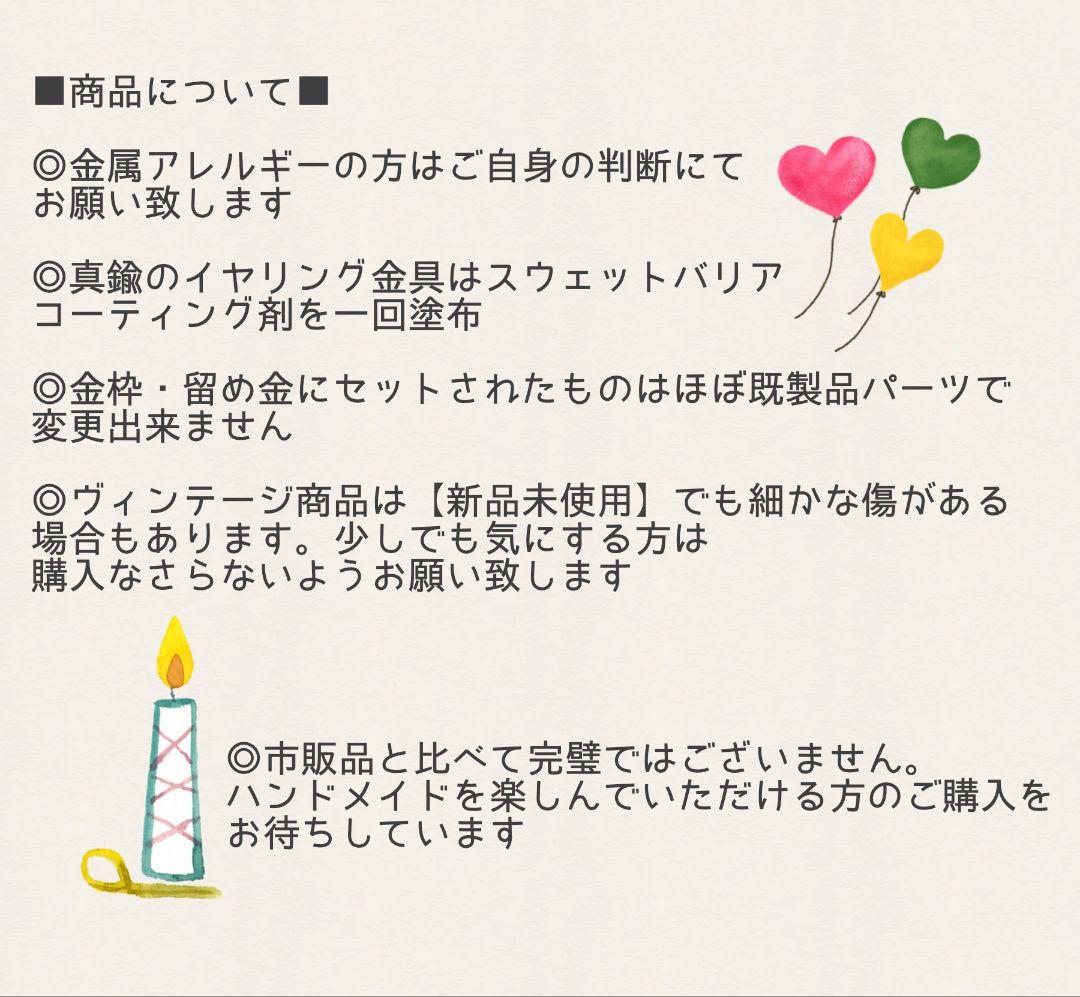 ■商品について■
◎金属アレルギーの方はご自身の判断にて
お願い致します
◎真鍮のイヤリング金具はスウェットバリア
コーティング剤を一回塗布
◎金枠・留め金にセットされたものはほぼ既製品パーツで
変更出来ません
◎ヴィンテージ商品は【新品未使用】でも細かな傷がある
場合もあります。少しでも気にする方は
購入なさらないようお願い致します
◎市販品と比べて完璧ではございません。
ハンドメイドを楽しんでいただける方のご購入を
お待ちしています